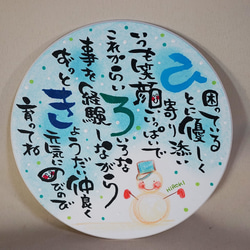 困っている
ひとに優しく
寄り添い
いつも笑顔いっぱいで
これからいろいろな
事を経験しながら
きょうだい仲良く
ずっと元気にのびのび
育ってね
Hiroki